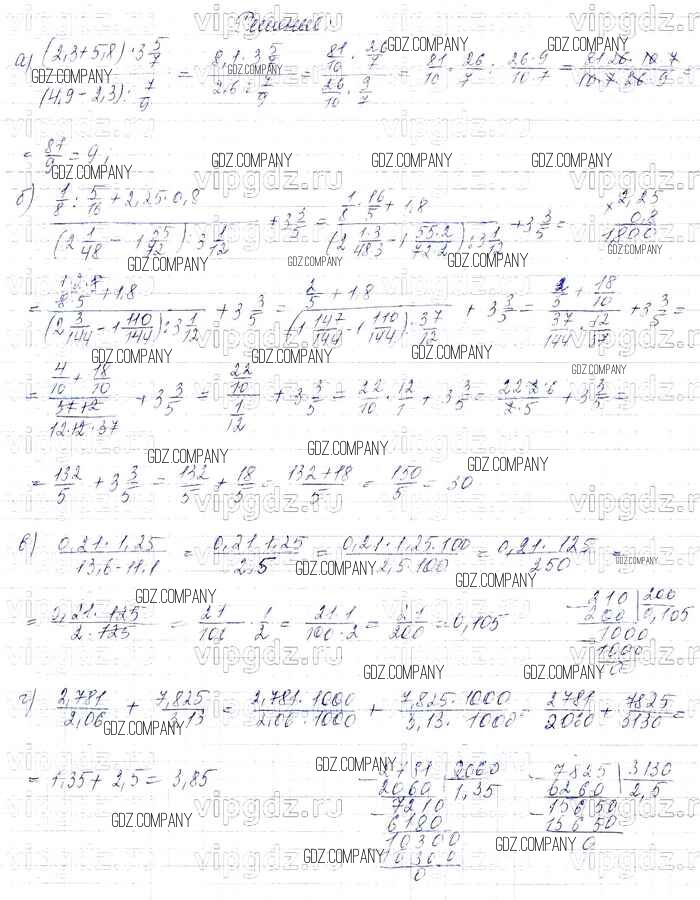 Решение:
а) \frac{(2,3+5,8) \cdot 3\frac{5}{7}}{(4,9-2,3) : \frac{7}{9}} = \frac{8,1 \cdot 3\frac{5}{7}}{2,6 : \frac{7}{9}} = \frac{\frac{81}{10} \cdot \frac{26}{7}}{\frac{26}{10} \cdot \frac{9}{7}} = \frac{81}{10} \cdot \frac{26}{7} : \frac{26 \cdot 9}{10 \cdot 7} = \frac{81 \cdot 26 \cdot 10 \cdot 7}{10 \cdot 7 \cdot 26 \cdot 9} =
= \frac{81}{9} = 9;
б) \frac{\frac{1}{8} : \frac{5}{16} + 2,25 \cdot 0,8}{(2\frac{1}{48} - 1\frac{55}{72}) : 3\frac{1}{12}} + 3\frac{3}{5} = \frac{\frac{1}{8} \cdot \frac{16}{5} + 1,8}{(2\frac{1 \cdot 3}{48 \cdot 3} - 1\frac{55 \cdot 2}{72 \cdot 2}) : 3\frac{1}{12}} + 3\frac{3}{5} =
× 2,25
0,8
1,800
= \frac{\frac{1 \cdot 2 \cdot 8}{8 \cdot 5} + 1,8}{(2\frac{3}{144} - 1\frac{110}{144}) : 3\frac{1}{12}} + 3\frac{3}{5} = \frac{\frac{2}{5} + 1,8}{(1\frac{147}{144} - 1\frac{110}{144}) : \frac{37}{12}} + 3\frac{3}{5} = \frac{\frac{2}{5} + \frac{18}{10}}{\frac{37}{144} \cdot \frac{12}{37}} + 3\frac{3}{5} =
= \frac{\frac{4}{10} + \frac{18}{10}}{\frac{37 \cdot 12}{12 \cdot 12 \cdot 37}} + 3\frac{3}{5} = \frac{\frac{22}{10}}{\frac{1}{12}} + 3\frac{3}{5} = \frac{22}{10} \cdot \frac{12}{1} + 3\frac{3}{5} = \frac{22 \cdot 2 \cdot 6}{2 \cdot 5} + 3\frac{3}{5} =
= \frac{132}{5} + 3\frac{3}{5} = \frac{132}{5} + \frac{18}{5} = \frac{132+18}{5} = \frac{150}{5} = 30
в) \frac{0,21 \cdot 1,25}{13,6-11,1} = \frac{0,21 \cdot 1,25}{2,5} = \frac{0,21 \cdot 1,25 \cdot 100}{2,5 \cdot 100} = \frac{0,21 \cdot 125}{250} =
= \frac{0,21 \cdot 125}{2 \cdot 125} = \frac{21}{100} \cdot \frac{1}{2} = \frac{21 \cdot 1}{100 \cdot 2} = \frac{21}{200} = 0,105
210 | 200
200 | 0,105
1000
1000
0
г) \frac{2,781}{2,06} + \frac{7,825}{3,13} = \frac{2,781 \cdot 1000}{2,06 \cdot 1000} + \frac{7,825 \cdot 1000}{3,13 \cdot 1000} = \frac{2781}{2060} + \frac{7825}{3130} =
= 1,35 + 2,5 = 3,85
2781 | 2060
2060 | 1,35
7210
6180
10300
10300
0
7825 | 3130
6260 | 2,5
15650
15650
0
GDZ.COMPANY
vipgdz.ru